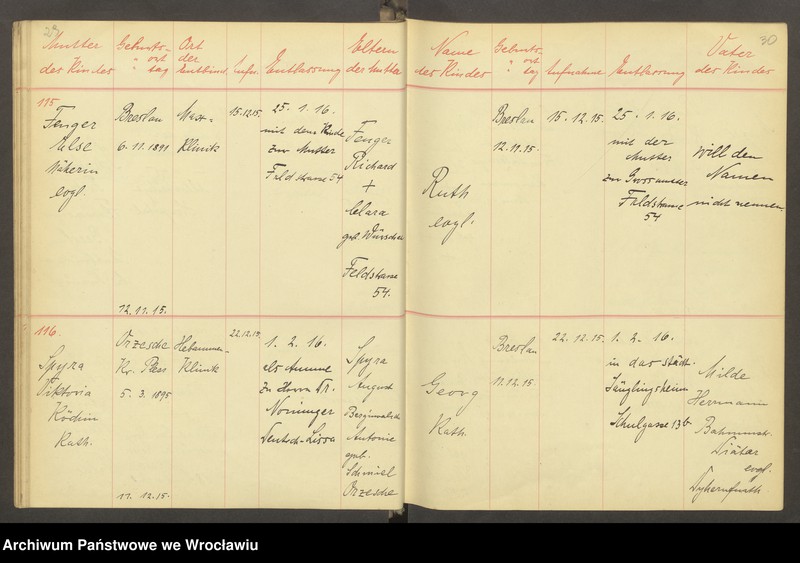 29
Mutter
des Kindes
Geburts-
" ort
tag
Ort
der
Entbind.
Aufn.
Entlassung
Eltern
der Mutter
115
Fenger
Else
Näherin
evgl.
Breslau
6. 11. 1891
12. 11. 15.
Klinik
15.12.15.
25. 1. 16.
mit dem Kinde
zur Mutter
Feldstrasse 54
Fenger
Richard
+
Clara
geb.
Feldstrasse
54.
116.
Spyra
Viktoria
Köchin
Kath.
Orzesche
Kr. Pless
5. 3. 1895
11. 12. 15.
Hebammen-
Klinik
22.12.15.
1. 2. 16.
als Amme
zu Herrn Dr.
Deutsch-Lissa
Spyra
August
Antonie
geb.
Orzesche
30
Name
des Kindes
Geburts-
" ort
tag
Aufnahme
Entlassung
Vater
des Kindes
Ruth
evgl.
Breslau
12.11.15.
15. 12. 15.
25. 1. 16.
mit der
Mutter
zur Grossmutter
Feldstrasse
54
Will den
Namen
nicht nennen.
Georg
Kath.
Breslau
11.12.15.
22. 12. 15.
1. 2. 16.
in das städt.
Säuglingsheim
Schulgasse 13b
Milde
Herrmann
Diätar
evgl.
Archiwum Państwowe we Wrocławiu